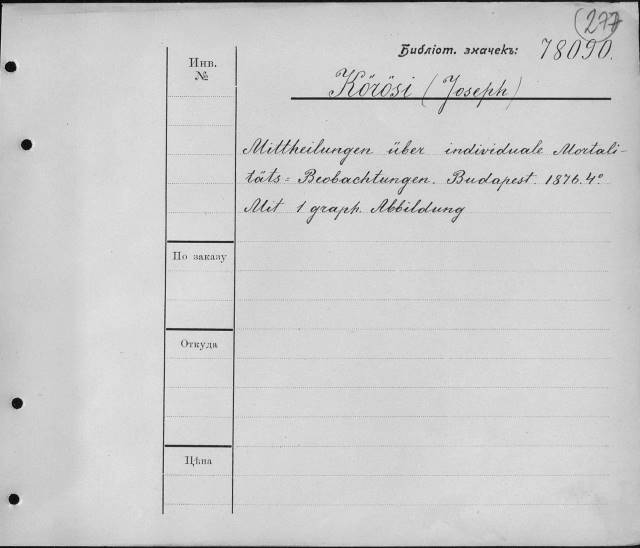 277
Библіот. значекъ: 78090.
Инв.
№
Kőrösi (Joseph)
Mittheilungen über individuale Mortali-
täts= Beobachtungen. Budapest. 1876. 4º
Mit 1 graph. Abbildung
По заказу
Откуда
Цѣна